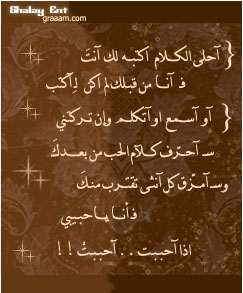 Ghalay Ent
graaam.com
{ آحلى الكلام اكتبه لك آنتَ
فـ آنـا من قبلك لم اكن لِآكتب
{ آو آسمع او آتكلم وإن تركتني
سـ آحرّف كلآم الحب من بعدك
وسـ آمزّق كل آنثى تقترب منك
فأنـا ياحبيبي
اذا آحببت . . آحببتُ ! !